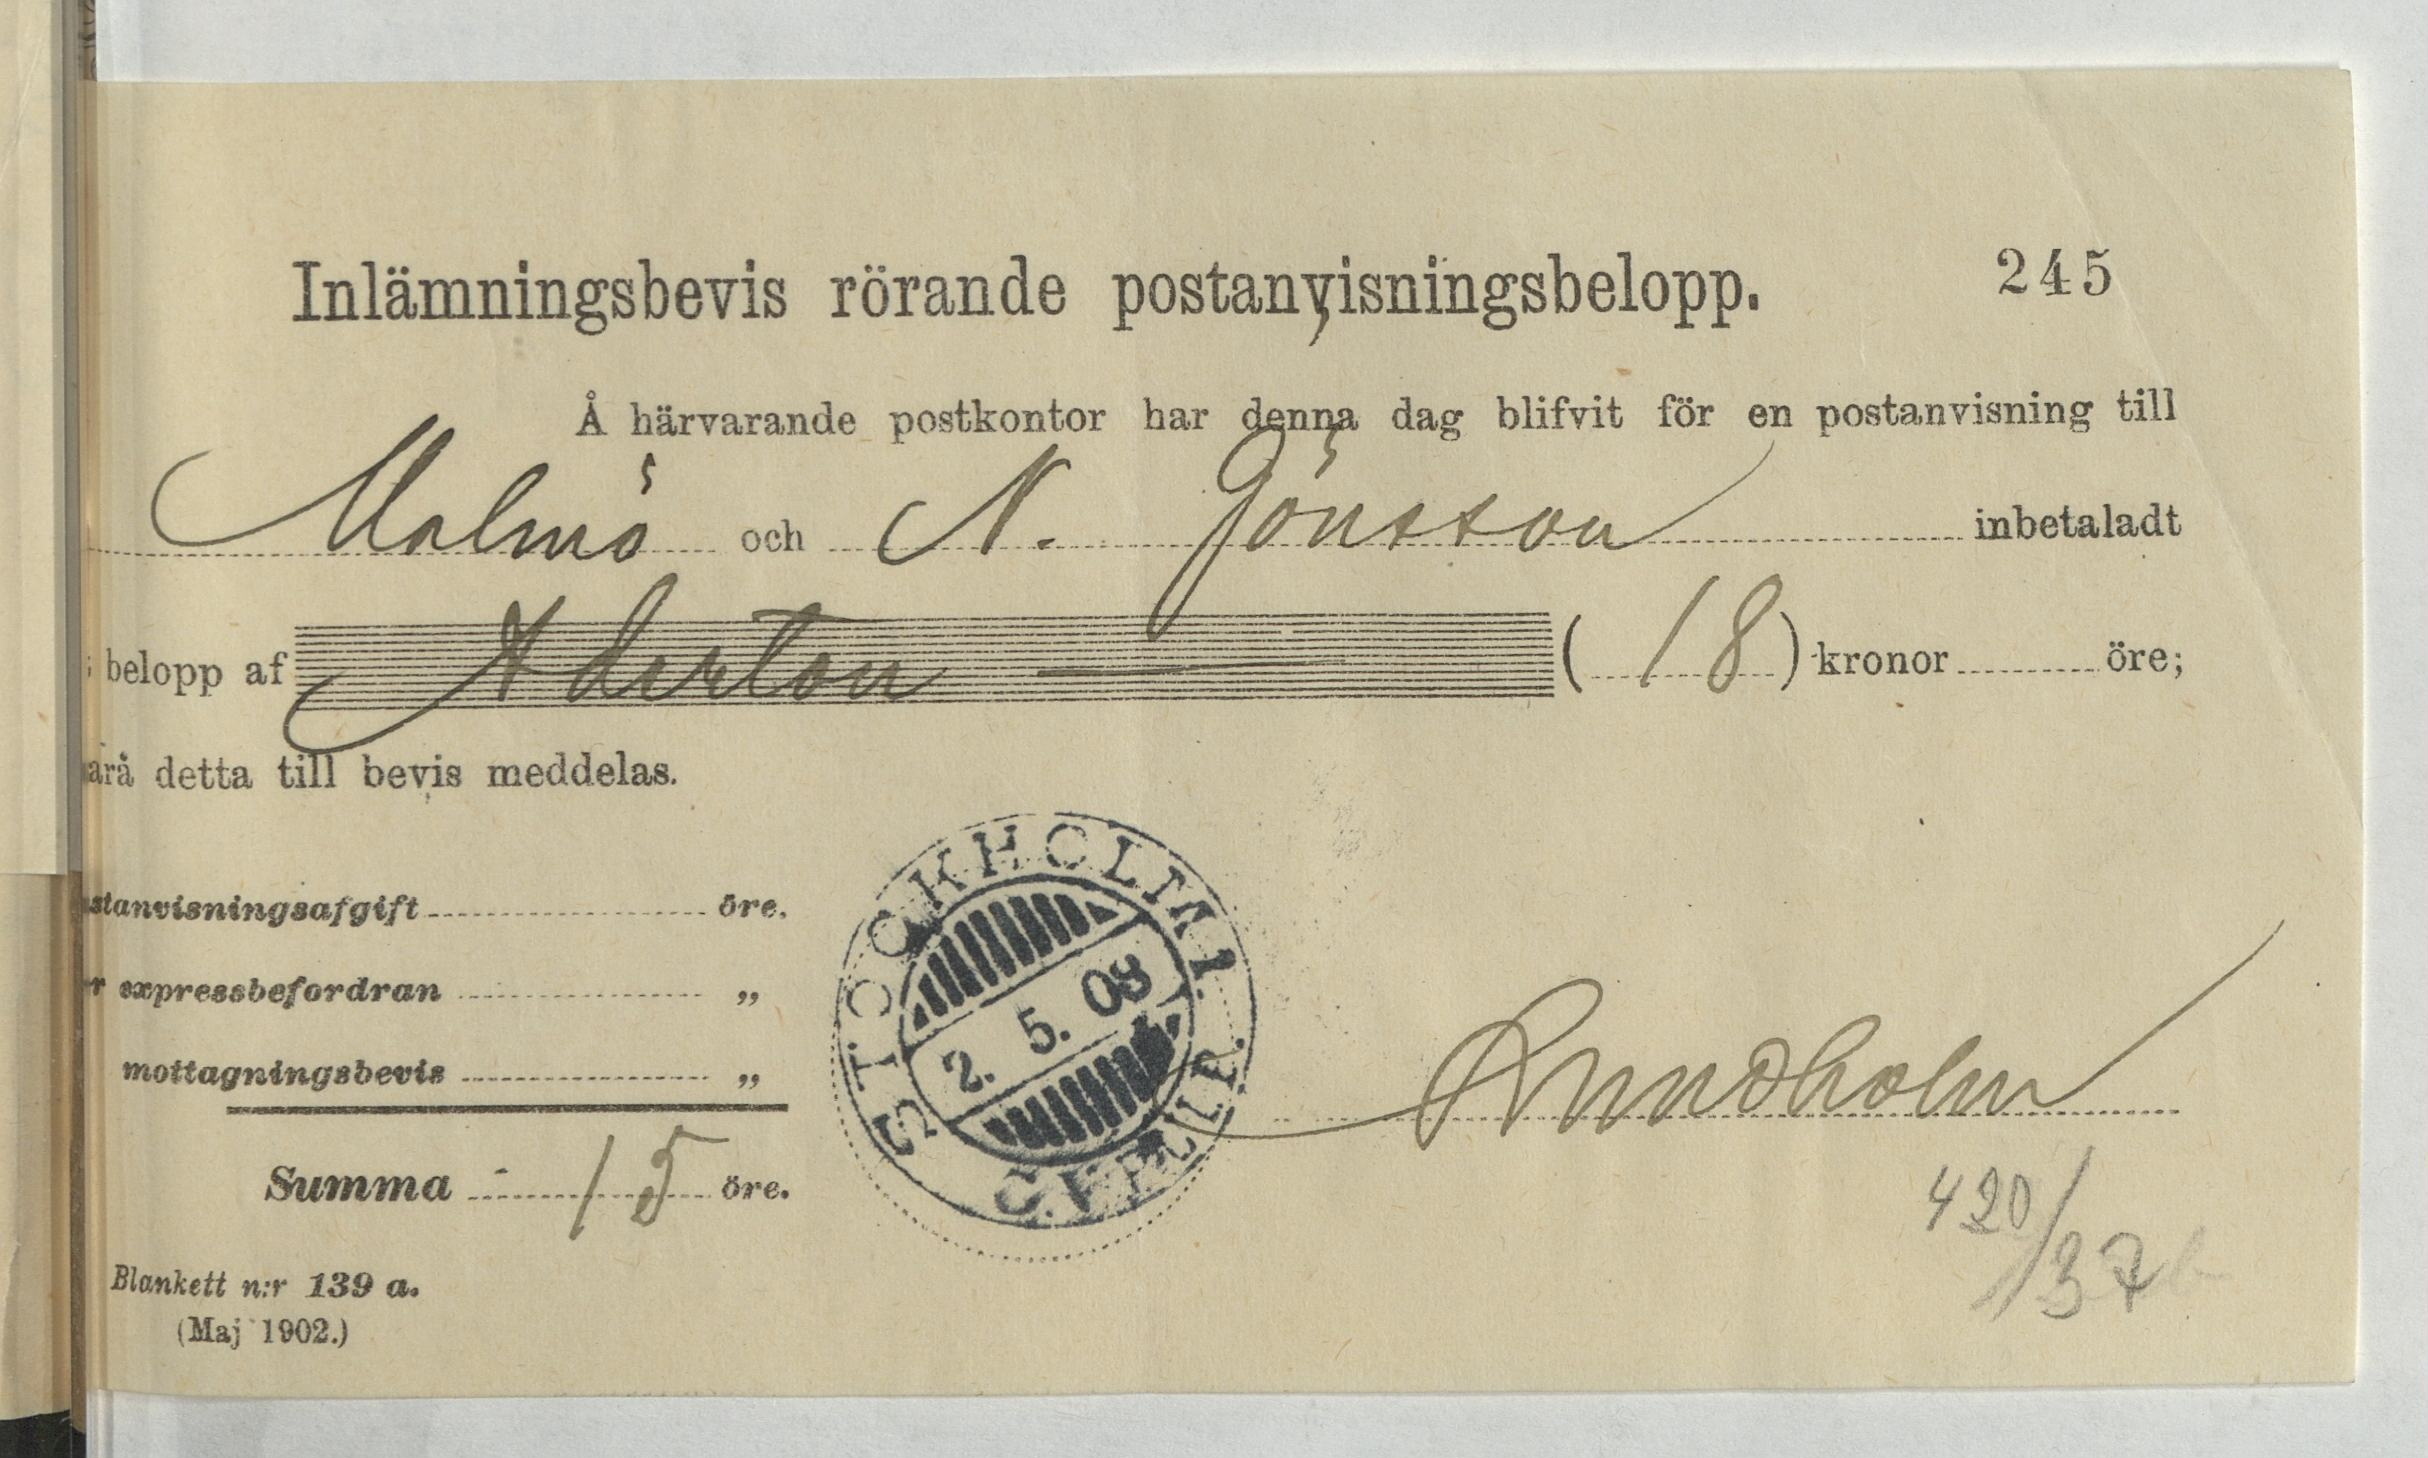 Inlämningsbevis rörande postanvisningsbelopp. 245
Å härvarande postkontor har denna dag blifvit för en postanvisning till
Malmö och N. Jönsson inbetaladt
belopp af Aderton — ( 18 ) kronor öre;
detta till bevis meddelas.
öre.
expressbefordran „
mottagningsbevis „
Summa 15 öre.
STOCKHOLM 1.
2. 5. 03
Lundholm
420/37
Blankett n:r 139 a.
(Maj 1902.)